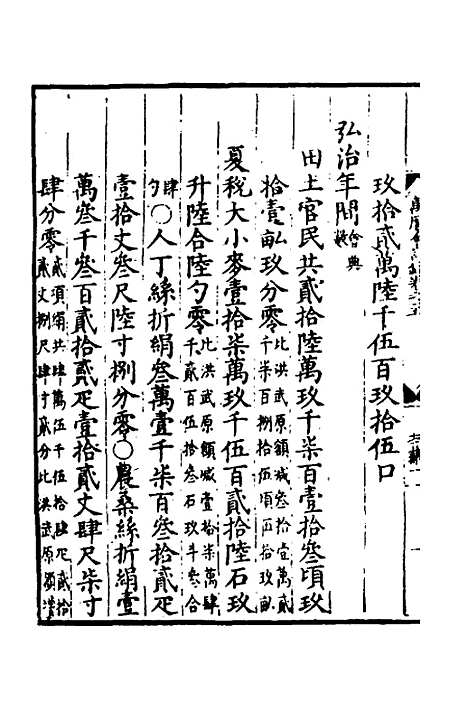 玖拾貳萬陸千伍百玖拾伍口
弘治年間會典
田土官民共貳拾陸萬玖千柒百壹拾叁頃玖
拾壹畝玖分零比洪武原額減叁拾壹萬貳
千柒百捌拾伍頃伍拾玖畝
夏稅大小麥壹拾柒萬玖千伍百貳拾陸石玖
升陸合陸勺零比洪武原額減壹拾柒萬肆
千貳百伍拾叁石玖斗叁合
肆勺〇人丁絲折絹叁萬壹千柒百叁拾貳疋
壹拾丈叁尺陸寸捌分零〇農桑絲折絹壹
萬叁千叁百貳拾貳疋壹拾貳丈肆尺柒寸
肆分零貳項絹共肆萬伍千伍拾肆疋貳拾
貳丈捌尺肆寸貳分比洪武原額